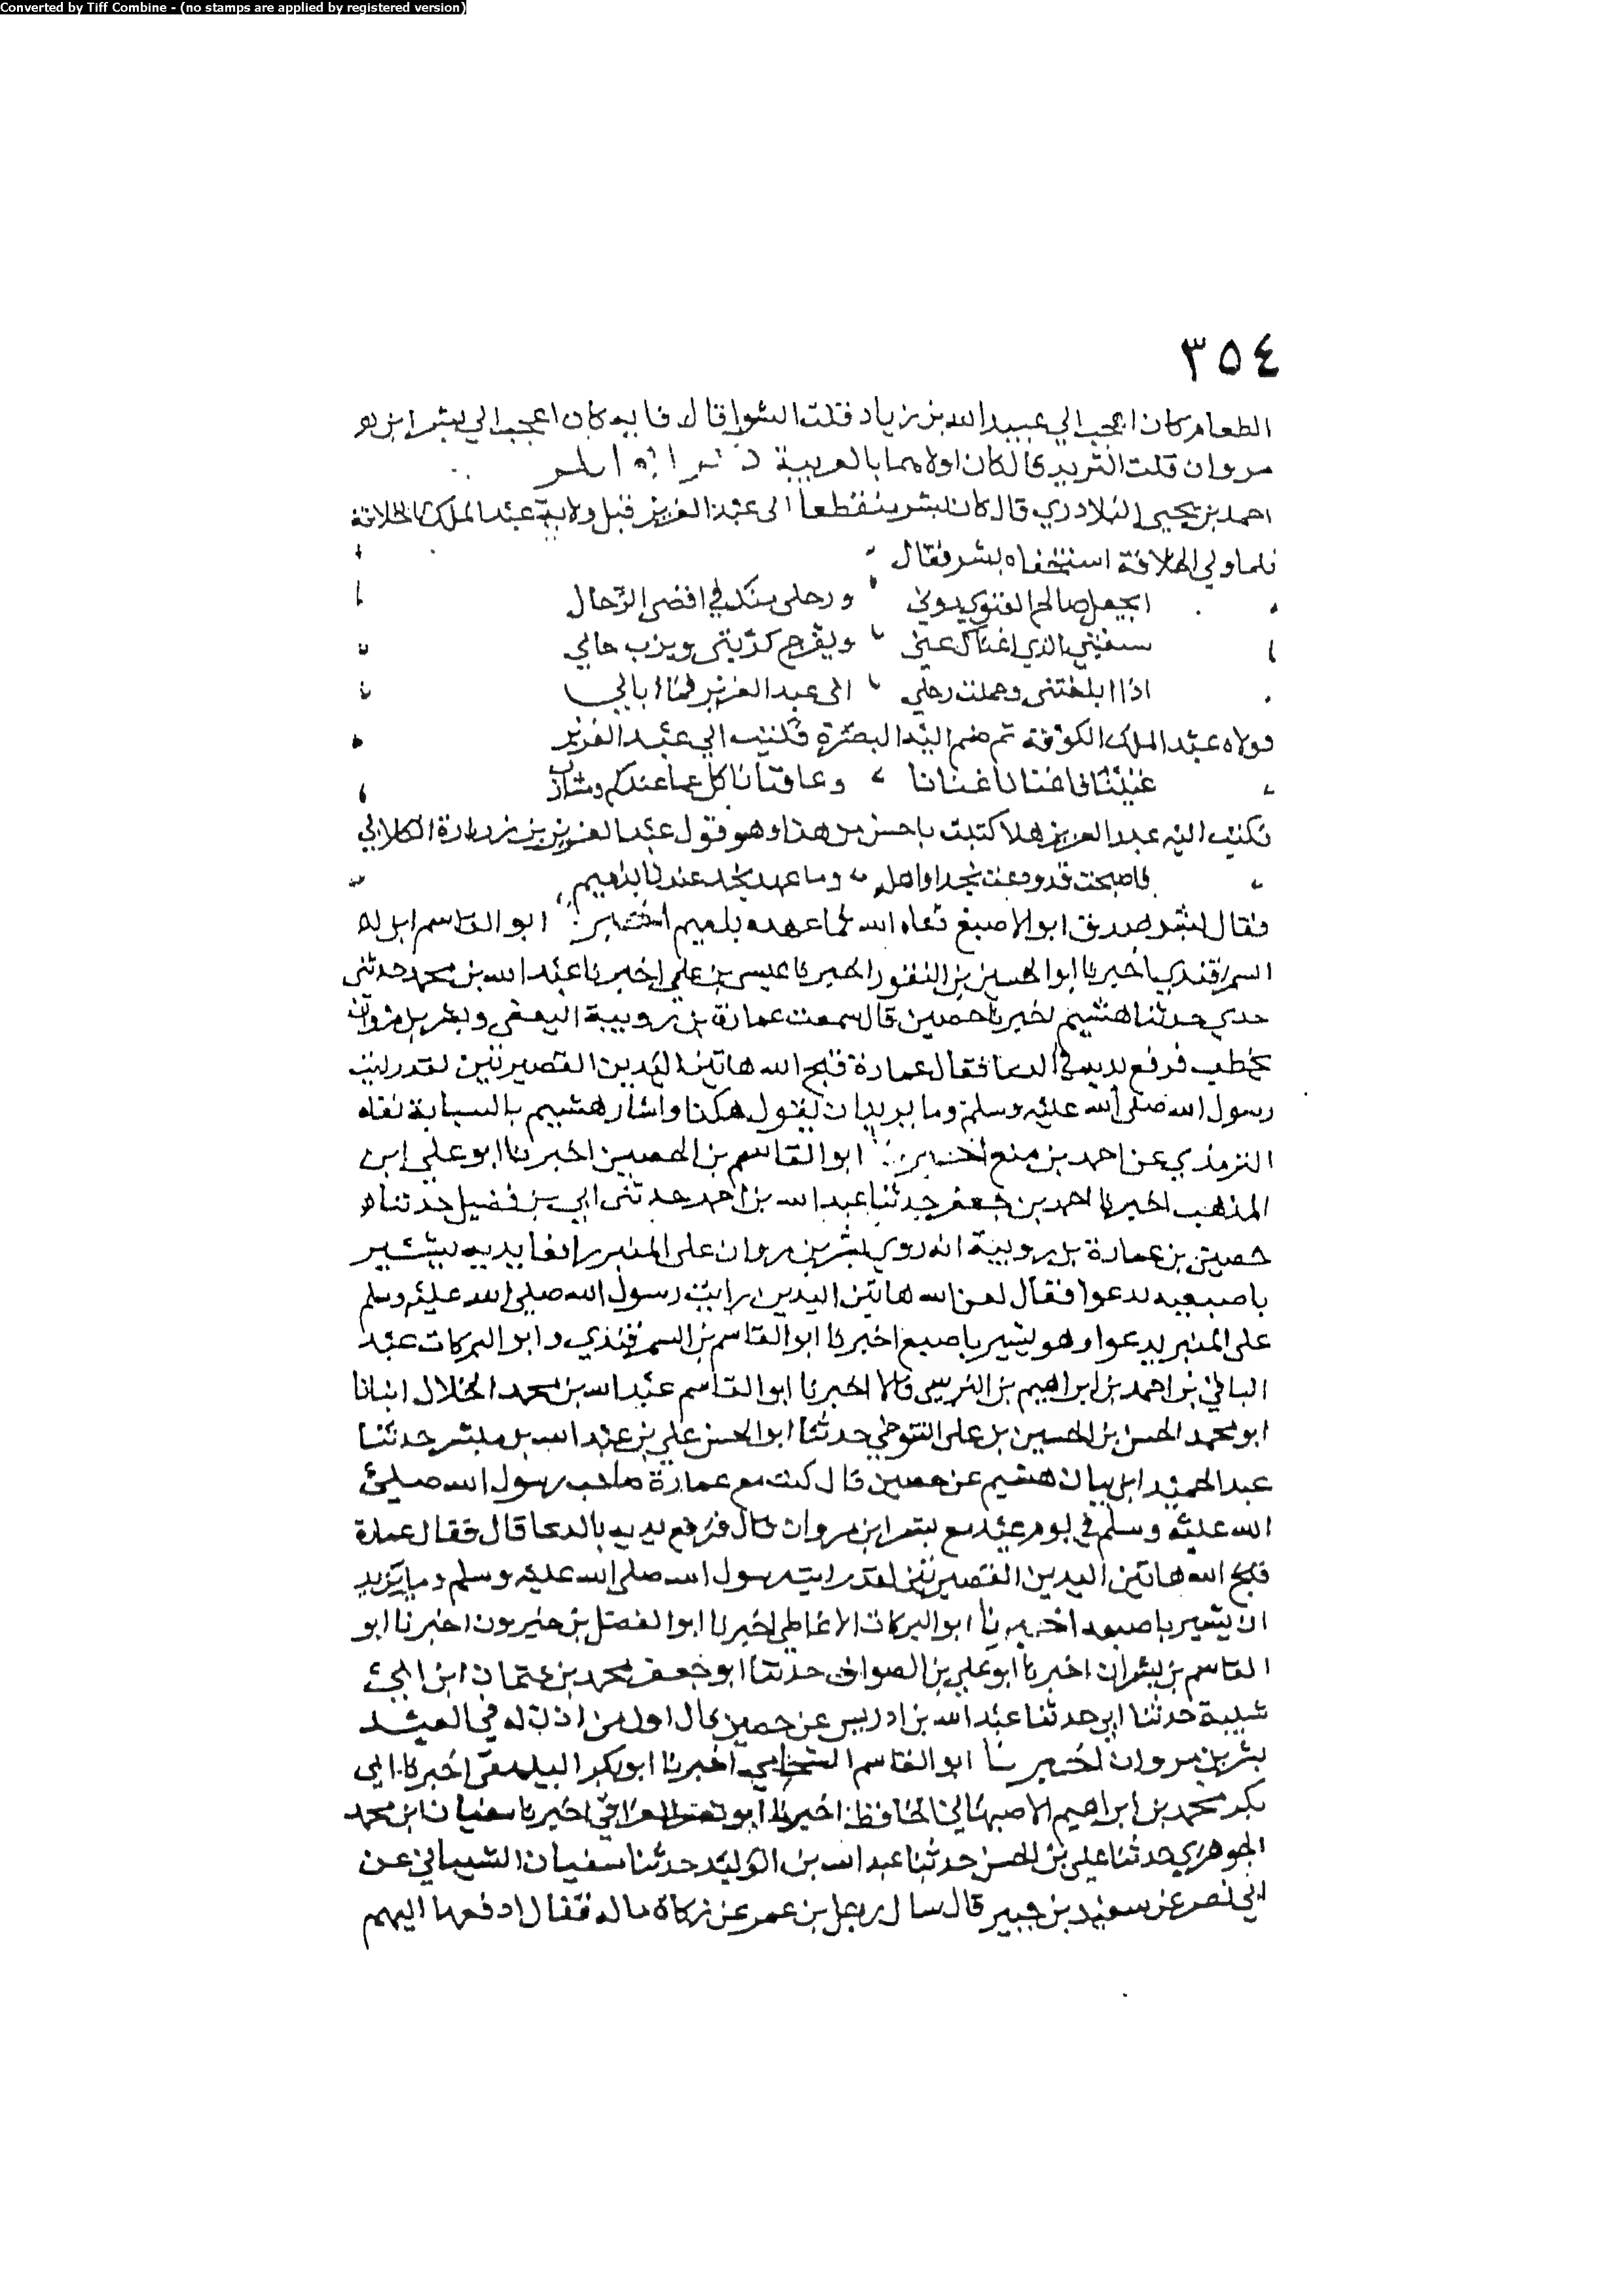 Converted by Tiff Combine - (no stamps are applied by registered version)
٣٥٤
الطعام كان اعجب الي عبيد الله بن زياد قلت الشوا قال فايه كان اعجب الي بشر ابن
مروان قلت الثريد قال كان اولاهما بالعربية
احمد بن يحيى البلادري قال كان بشر منقطعا الى عبد العزيز قبل ولاية عبد الملك الخلافة
فلما ولي الخلافة استخفاه بشر فقال
ايجعل صالح الغنوي دوني ورحلي منك في اقصى الرحال
سيغنيني الذي اغناك عني ويفرج كربتي ويرب حالي
اذا ابلغتني وحملت رحلي الى عبد العزيز فما ابالي
فولاه عبد الملك الكوفة ثم ضم اليه البصرة فكتب الي عبد العزيز
غنينا فاغنانا غنانا وعاقنا ماكل عما عندكم ومشارب
فكتب اليه عبد العزيز هلا كتبت باحسن من هذا وهو قول عبد العزيز بن زرارة الكلابي
فاصبحت قد ودعت نجدا واهله وما عهد نجد عندنا بذميم
فقال بشر صدق ابو الاصبغ ثقاه الله فما عهده بذميم اخبرنا ابو القاسم ابن
السمرقندي اخبرنا ابو الحسين بن النقور اخبرنا عيسى بن علي اخبرنا عبد الله بن محمد حدثني
جدي حدثنا هشيم اخبرنا حصين قال سمعت عمارة بن رويبة الثقفي وبشر بن مروان
يخطب فرفع يديه في الدعا فقال عمارة قبح الله هاتين اليدين القصيرتين لقد رايت
رسول الله صلى الله عليه وسلم وما يريد ان يقول هكذا واشار هشيم بالسبابة
الترمذي عن احمد بن منيع اخبرنا ابو القاسم بن الحصين اخبرنا ابو علي ابن
المذهب اخبرنا احمد بن جعفر حدثنا عبد الله بن احمد حدثني ابي بن فضيل حدثنا
حصين بن عمارة بن رويبة انه روي بشر بن مروان على المنبر رافعا يديه يشير
باصبعيه يدعوا فقال لعن الله هاتين اليدين رايت رسول الله صلى الله عليه وسلم
على المنبر يدعوا وهو يشير باصبع اخبرنا ابو القاسم بن السمرقندي وابو البركات عبد
الباقي بن احمد بن ابراهيم بن النرسي قالا اخبرنا ابو القاسم عبد الله بن محمد الخلال انبانا
ابو محمد الحسن بن الحسين بن علي النوبختي حدثنا ابو الحسن علي بن عبد الله بن مبشر حدثنا
عبد الحميد ابن بيان هشيم عن حصين قال كنت مع عمارة صاحب رسول الله صلى
الله عليه وسلم في يوم عيد مع بشر ابن مروان قال فرفع يديه بالدعا قال فقال عمارة
قبح الله هاتين اليدين القصيرتين لقد رايت رسول الله صلى الله عليه وسلم وما يزيد
ان يشير باصبعه اخبرنا ابو البركات الانماطي اخبرنا ابو الفضل بن خيرون اخبرنا ابو
القاسم بن بشران اخبرنا ابو علي بن الصواف حدثنا ابو جعفر محمد بن عثمان ابن ابي
شيبة حدثنا ابي حدثنا عبد الله بن ادريس عن حصين قال اول من اذن له في العيد
بشر بن مروان اخبرنا ابو القاسم الشحامي اخبرنا ابو بكر البيهقي اخبرنا ابي
بكر محمد بن ابراهيم الاصبهاني الحافظ اخبرنا ابو نصر العراقي اخبرنا سفيان ابن محمد
الجوهري حدثنا علي بن الحسن حدثنا عبد الله بن الوليد حدثنا سفيان الشيباني عن
ابي نصر عن سعيد بن جبير قال سال رجل بن عمر عن زكاة ماله فقال ادفعها اليهم